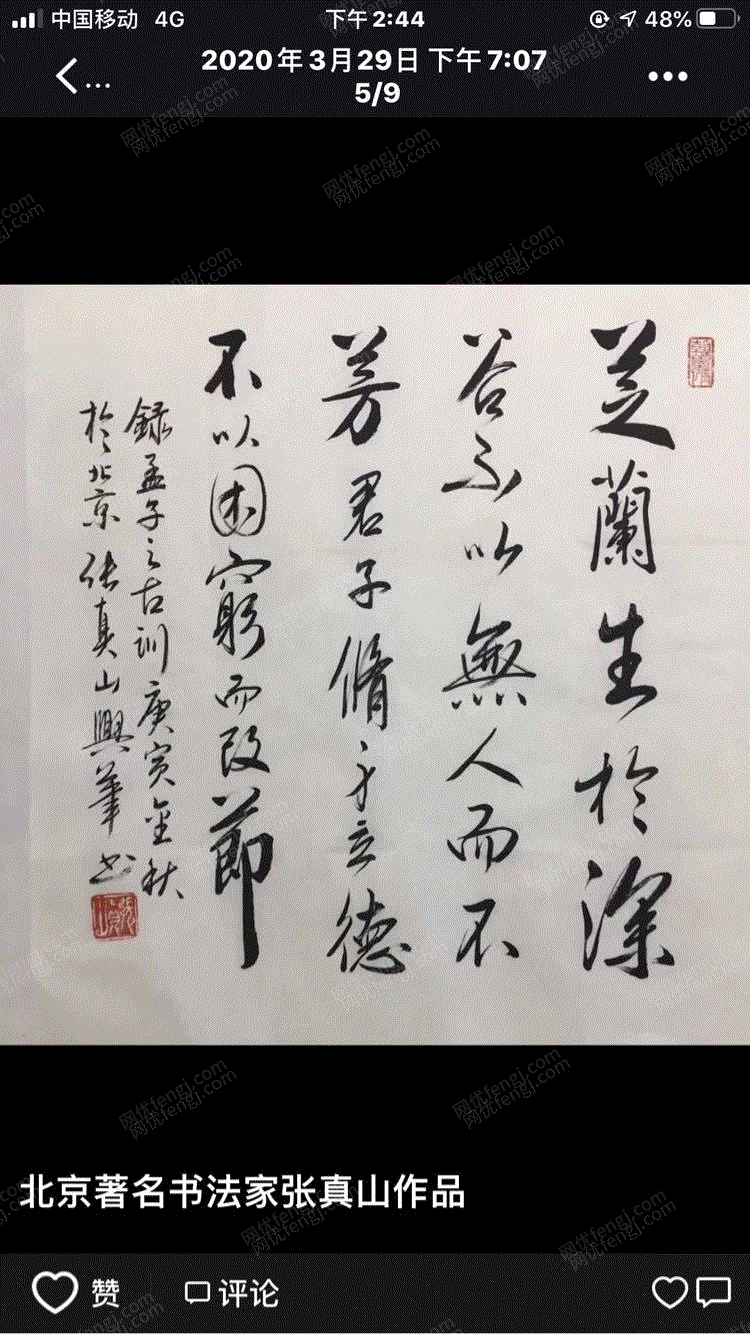 中国移动 4G 下午2:44 48%
2020年3月29日 下午7:07
5/9
芝蘭生於深
谷不以無人而不
芳君子脩身立德
不以困窮而改節
録孟子之古训庚寅金秋
於北京 张真山興華书
北京著名书法家张真山作品
赞 评论
网优fengj.com